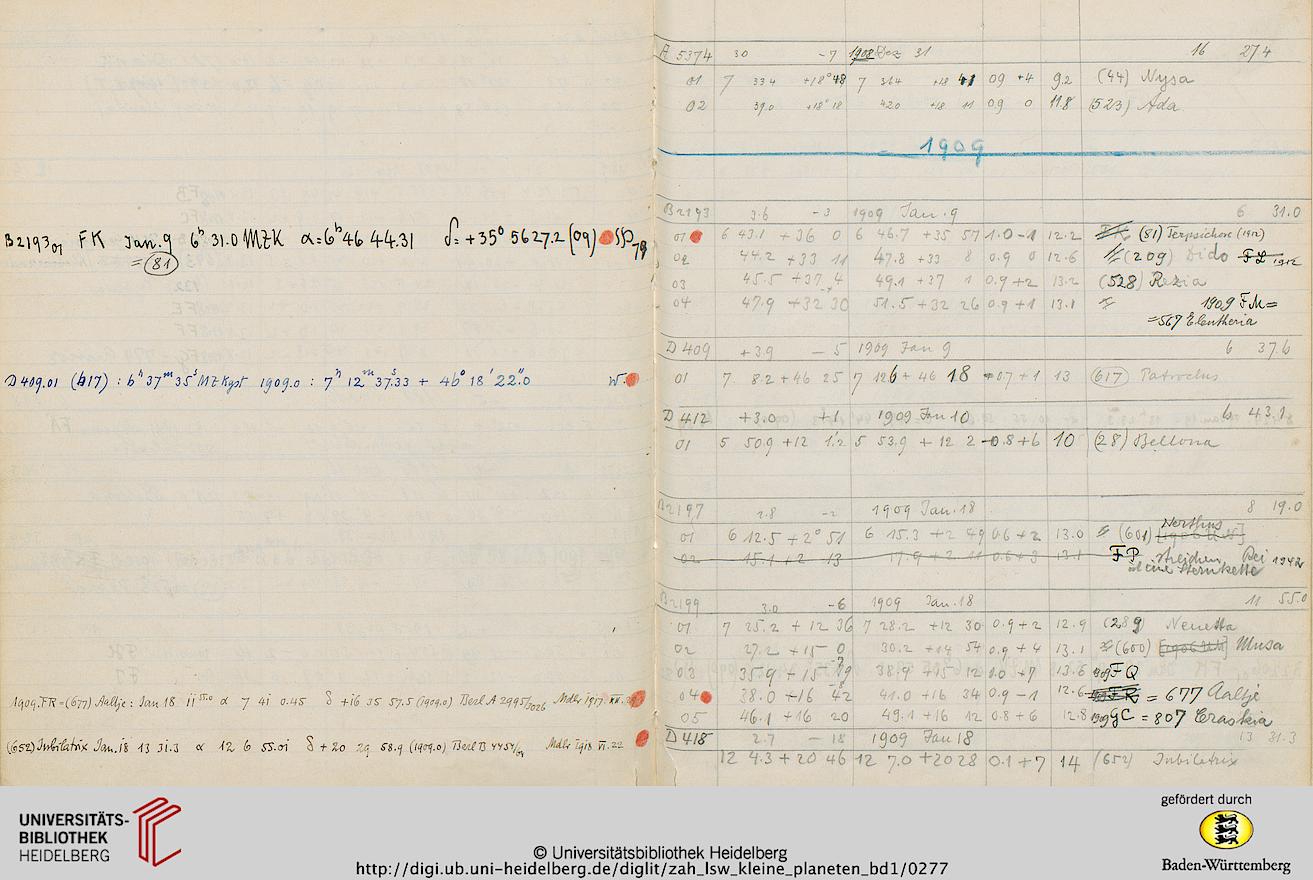 B2193 01 FK Jan. 9 6h 31.0 MZK α=6h 46 44.31 δ= +35° 56 27.2 (09)
= (81)
D 409.01 (617) : 6h 37m 35s MZ Kgst 1909.0 : 7h 12m 37.33 + 46° 18' 22".0 W.
1909.FR = (677) Aaltje : Jan 18 11 55.0 α 7 41 0.45 δ +16 35 57.5 (1909.0) Berl A 2995/3026 Mdlr 1917.
(652) Jubilatrix Jan. 18 13 31.3 α 12 6 55.01 δ +20 29 58.9 (1909.0) Berl B Mdlr 1918 VI. 22
A 5374 30 -7 1908 Dez 31 16 27.4
01 7 33.4 +18° 48 7 36.4 +18 41 0.9 +4 9.2 (44) Nysa
02 39.0 +18° 18 42.0 +18 11 0.9 0 11.8 (523) Ada
1909
B2193 3.6 -3 1909 Jan. 9 6 31.0
01 6 43.1 +36 0 6 46.7 +35 57 1.0 -1 12.2 (81) Terpsichore (1912)
02 44.2 +33 11 47.8 +33 8 0.9 0 12.6 (209) Dido FL 1912
03 45.5 +37 4 49.1 +37 1 0.9 +2 13.2 (528) Rezia
04 47.9 +32 30 51.5 +32 26 0.9 +1 13.1 1909 FM =
= 567 Eleutheria
D 409 +3.9 -5 1909 Jan 9 6 37.6
01 7 8.2 +46 25 7 12.6 +46 18 0.7 +1 13 (617) Patroclus
D 412 +3.0 +1 1909 Jan 10 6 43.1
01 5 50.9 +12 1.2 5 53.9 +12 2 -0.8 +6 10 (28) Bellona
B2197 2.8 -2 1909 Jan. 18 8 19.0
01 6 12.5 +2° 51 6 15.3 +2 49 0.6 +2 13.0 (601) Nerthus
02 15.1 +2 13 17.9 +2 11 0.6 +3 13.1 FP streichen
ist eine Sternkette
B2199 3.0 -6 1909 Jan. 18 11 55.0
01 7 25.2 +12 36 7 28.2 +12 30 0.9 +2 12.9 (289) Nenetta
02 27.2 +15 0 30.2 +14 54 0.9 +4 13.1 (600) Musa
03 35.9 +15 19 38.9 +15 12 1.0 +7 13.6 1909 FQ
04 38.0 +16 42 41.0 +16 34 0.9 -1 12.6 1909 FR = 677 Aaltje
05 46.1 +16 20 49.1 +16 12 0.8 +6 12.8 1909 GC = 807 Ceraskia
D 418 2.7 -18 1909 Jan 18 13 31.3
12 4.3 +20 46 12 7.0 +20 28 0.1 +7 14 (652) Jubilatrix
UNIVERSITÄTS-
BIBLIOTHEK
HEIDELBERG
© Universitätsbibliothek Heidelberg
http://digi.ub.uni-heidelberg.de/diglit/zah_lsw_kleine_planeten_bd1/0277
gefördert durch
Baden-Württemberg